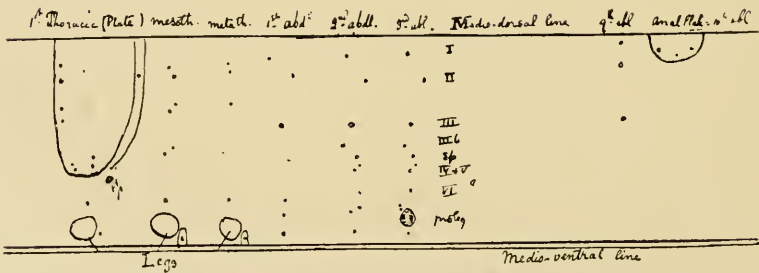 1st Thoracic (Plate) mesoth. metath. 1st abdl 2nd abdl. 3rd abl. Medio-dorsal line 9th abl anal Plate = 10th abl
I
II
III
III b
sp
IV + V
VI
sp
proleg
Legs Medio-ventral line